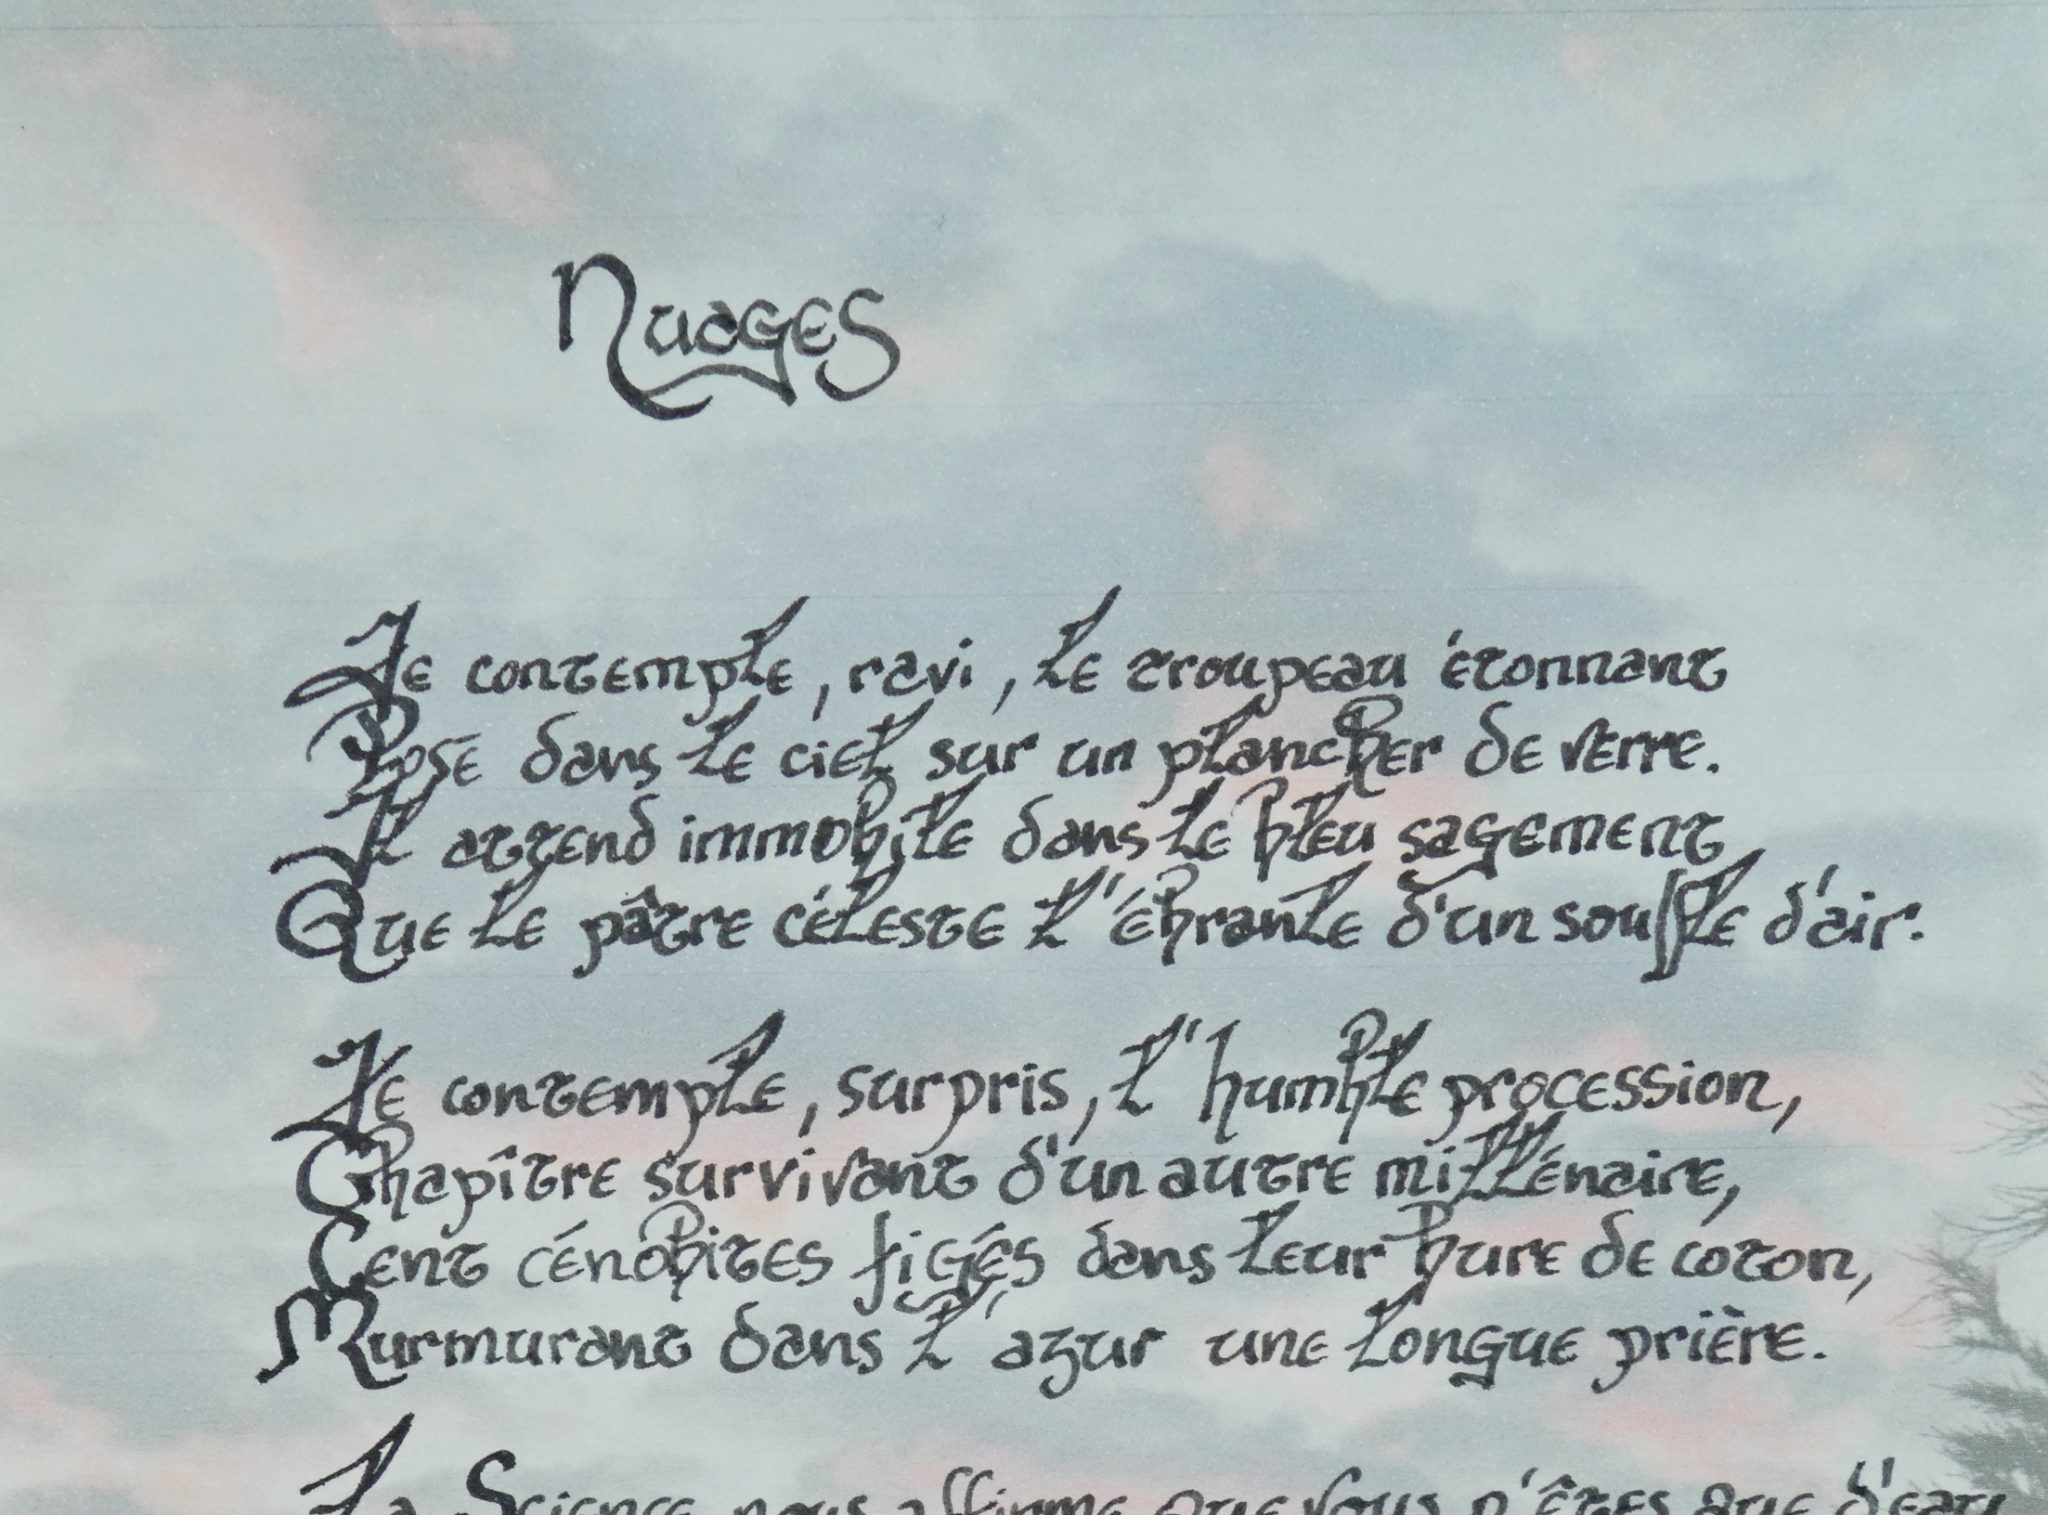 Nuages
Je contemple, ravi, le troupeau étonnant
Posé dans le ciel sur un plancher de verre.
Il attend immobile dans le bleu sagement
Que le pâtre céleste l'ébranle d'un souffle d'air.
Je contemple, surpris, l'humble procession,
Chapître survivant d'un autre millénaire,
Cent cénobites figés dans leur bure de coton,
Murmurant dans l'azur une longue prière.
La Science nous affirme que vous n'êtes que d'eau